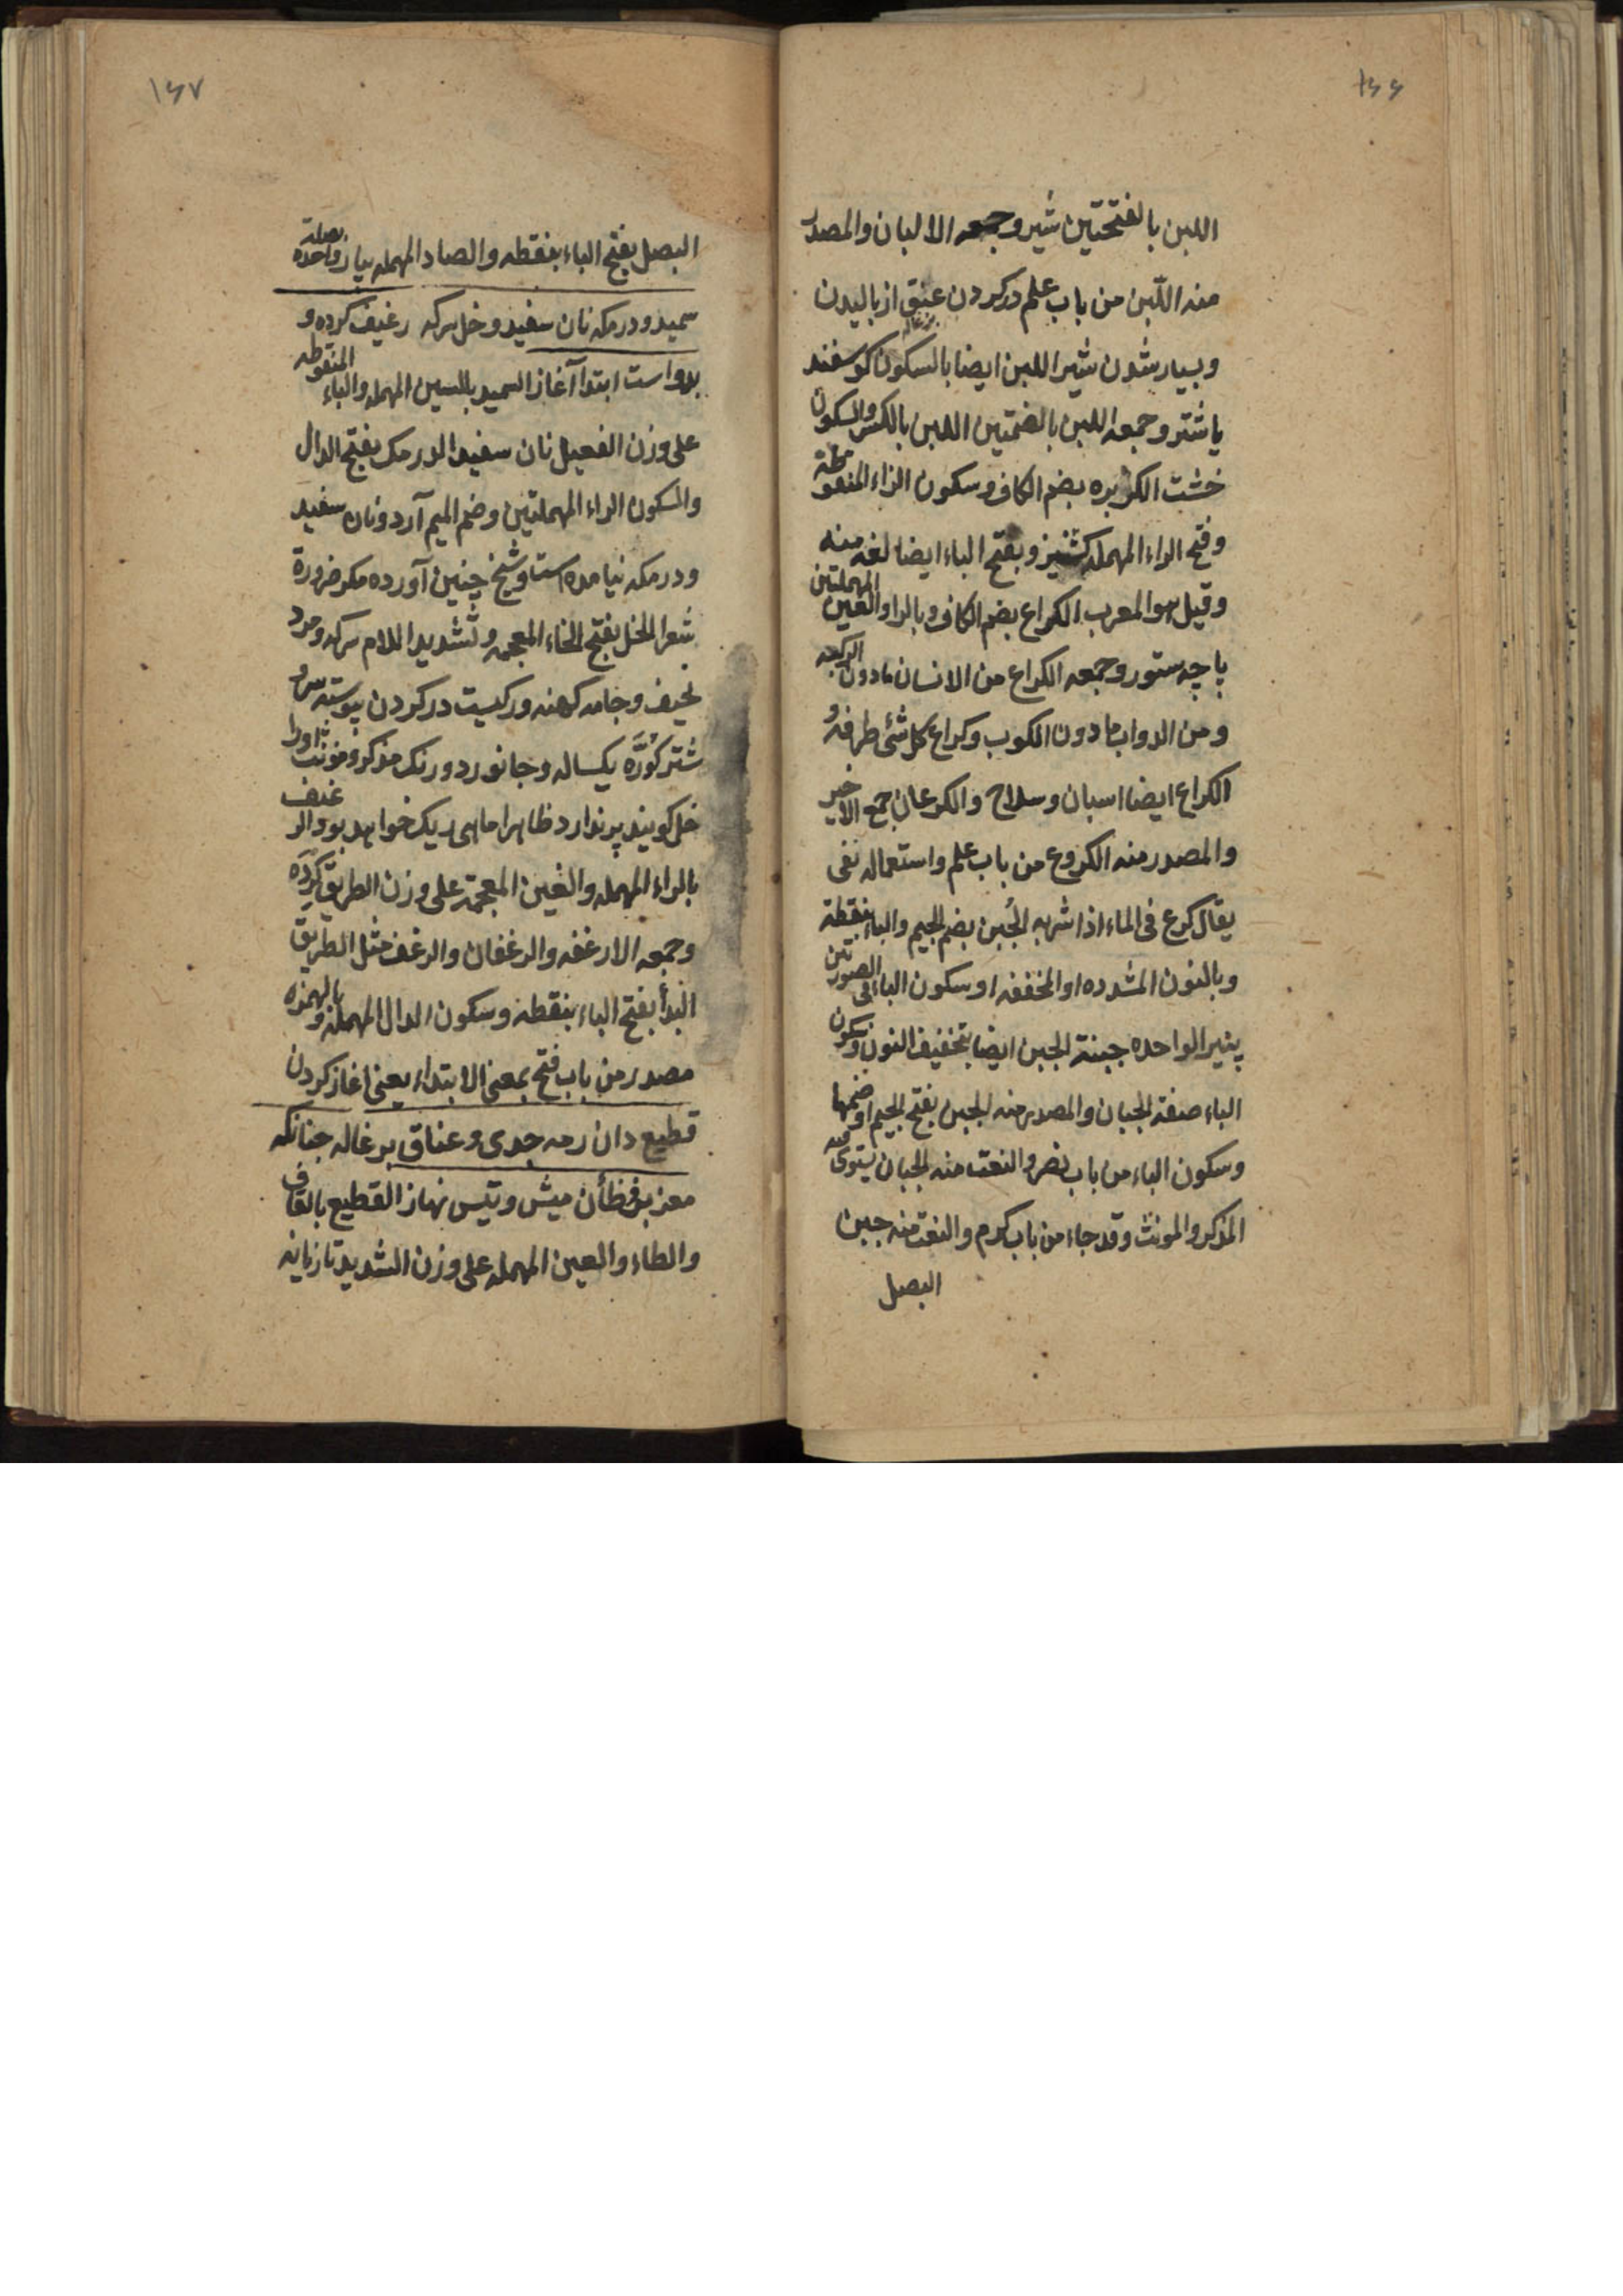 ۱۶۶
اللبن بالفتحتین شیر و جمعه الالبان والمصدر
منه اللّبن من باب علم درکردن عنق از بالیدن
وبسیار شدن شیر اللبن ایضا بالسکون کوسفند
یا شتر و جمعه اللبن بالضمتین اللبن بالکسر والسکون
خشت الکزبره بضم الکاف وسکون الزاء المنقوطة
وفتح الراء المهمله کشنیز وبفتح الباء ایضا لغه منه
وقیل هو المعرب الکراع بضم الکاف وبالراء والعین المهملتین
پاچه ستور و جمعه الکراع من الانسان مادون الرکبه
ومن الدواب مادون الکوب وکراع کل شئ طرفه و
الکراع ایضا اسبان وسلاح والکرعان جمع الاخیر
والمصدر منه الکروع من باب علم واستعماله نفی
یقال کرع فی الماء اذا شربه الجُبن بضم الجیم والباء بنقطة
وبالنون المشدده او المخففه او سکون الباء فی الصورتین
پنیر الواحده جبنة الجبن ایضا بتخفیف النون وسکون
الباء صفة الجبان والمصدر منه الجبن بفتح الجیم او ضمها
وسکون الباء من باب نصر والنعت منه الجبان یستوی فیه
المذکر والمونث وقد جاء من باب کرم والنعت منه جبین
البصل
۱۶۷
البصل بفتح الباء بنقطه والصاد المهمله پیاز واحده بصلة
سمید و درمکه نان سفید و خل سرکه رغیف کرده و
بدو است ابتدا آغاز السمید بالسین المهمله والیاء المنقوطه
علی وزن الفعیل نان سفید الدرمک بفتح الدال
والسکون الراء المهملتین وضم المیم آرد ونان سفید
ودرمکه نیامده است وشیخ چنین آورده مکر ضرورة
شعر الخل بفتح الخاء المعجمه وتشدید اللام سرکه ومرد
نحیف وجامه کهنه ورکیست درکردن پیوسته سر و
شتر کُرّه یکساله وجانور دورنک مذکر و مونث او را
خل کویند پر ندارد ظاهرا ماهی ریک خواهد بود الرغیف
بالراء المهمله والغین المعجمة علی وزن الطریق کرده
وجمعه الارغفه والرغفان والرغف مثل الطریق
البدأ بفتح الباء بنقطه وسکون الدال المهملة وبالهمزه
مصدر من باب فتح بمعنی الابتداء یعنی اغاز کردن
قطیع دان رمه جدی و عناق بزغاله جنانکه
معز بز وظأن میش و تیس نهاز القطیع بالقاف
والطاء والعین المهمله علی وزن الشدید تازیانه